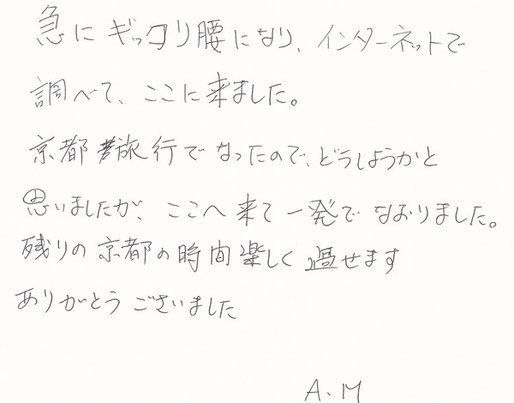 急にギックリ腰になり、インターネットで
調べて、ここに来ました。
京都旅行でなったので、どうしようかと
思いましたが、ここへ来て一発でなおりました。
残りの京都の時間楽しく過せます
ありがとうございました
A.M